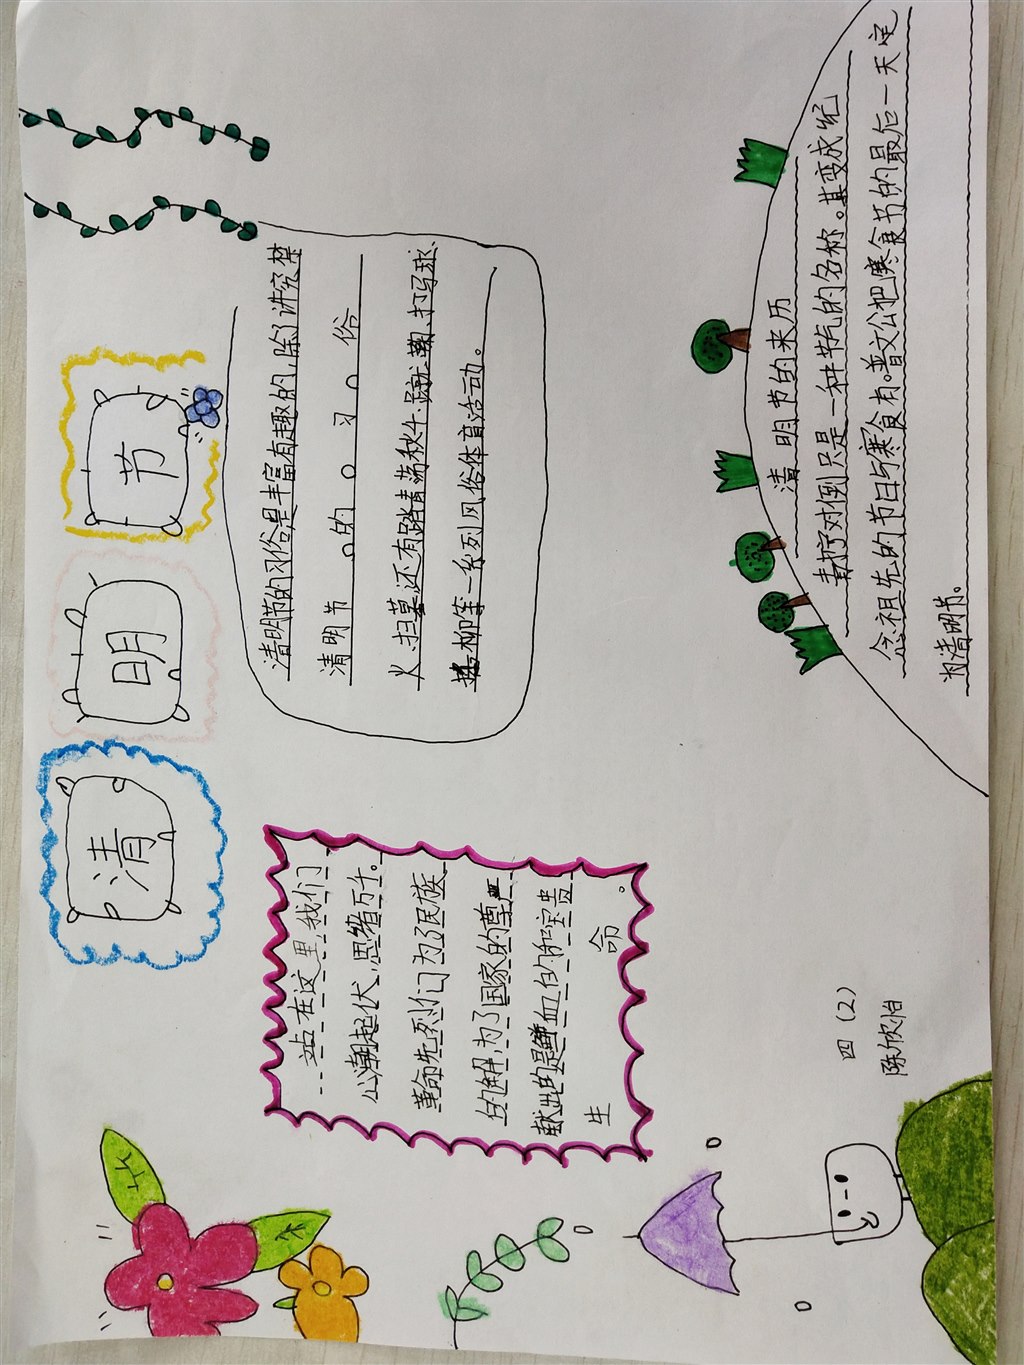 清明节
站在这里,我们
心潮起伏,思绪万千。
革命先烈们为了民族
的解,为了国家的尊严
献出的是鲜血的和宝贵
生命。
清明节的习俗是丰富有趣的,除了讲究禁
清明节的习俗
火、扫墓,还有踏青荡秋千、蹴鞠、打马球、
插柳等一系列风俗体育活动。
清明节的来历
对倒只是一种节气的名称。其变成纪
念祖先的节日与寒食有。晋文公把寒食节的最后一天定
为清明节。
四(2)
陈欣怡